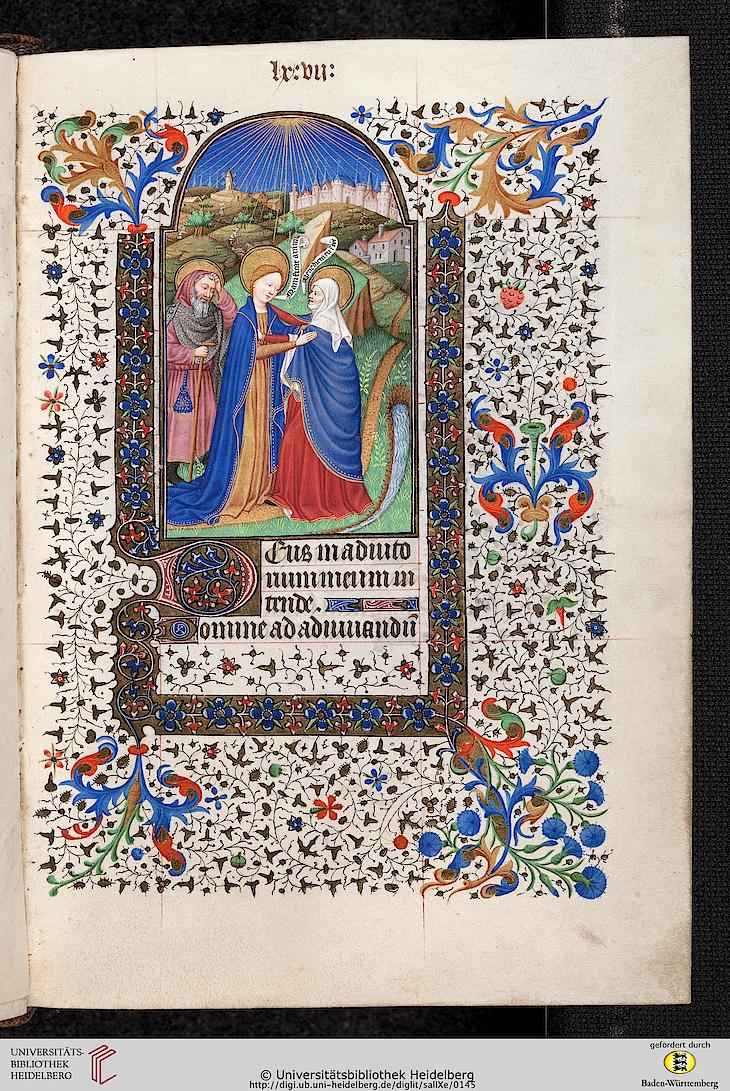 lx:vii:
Eus in adiuto
rium meum in
tende.
Domine ad adiuuandū
UNIVERSITÄTS-
BIBLIOTHEK
HEIDELBERG
© Universitätsbibliothek Heidelberg
http://digi.ub.uni-heidelberg.de/diglit/salIXe/0145
gefördert durch
Baden-Württemberg